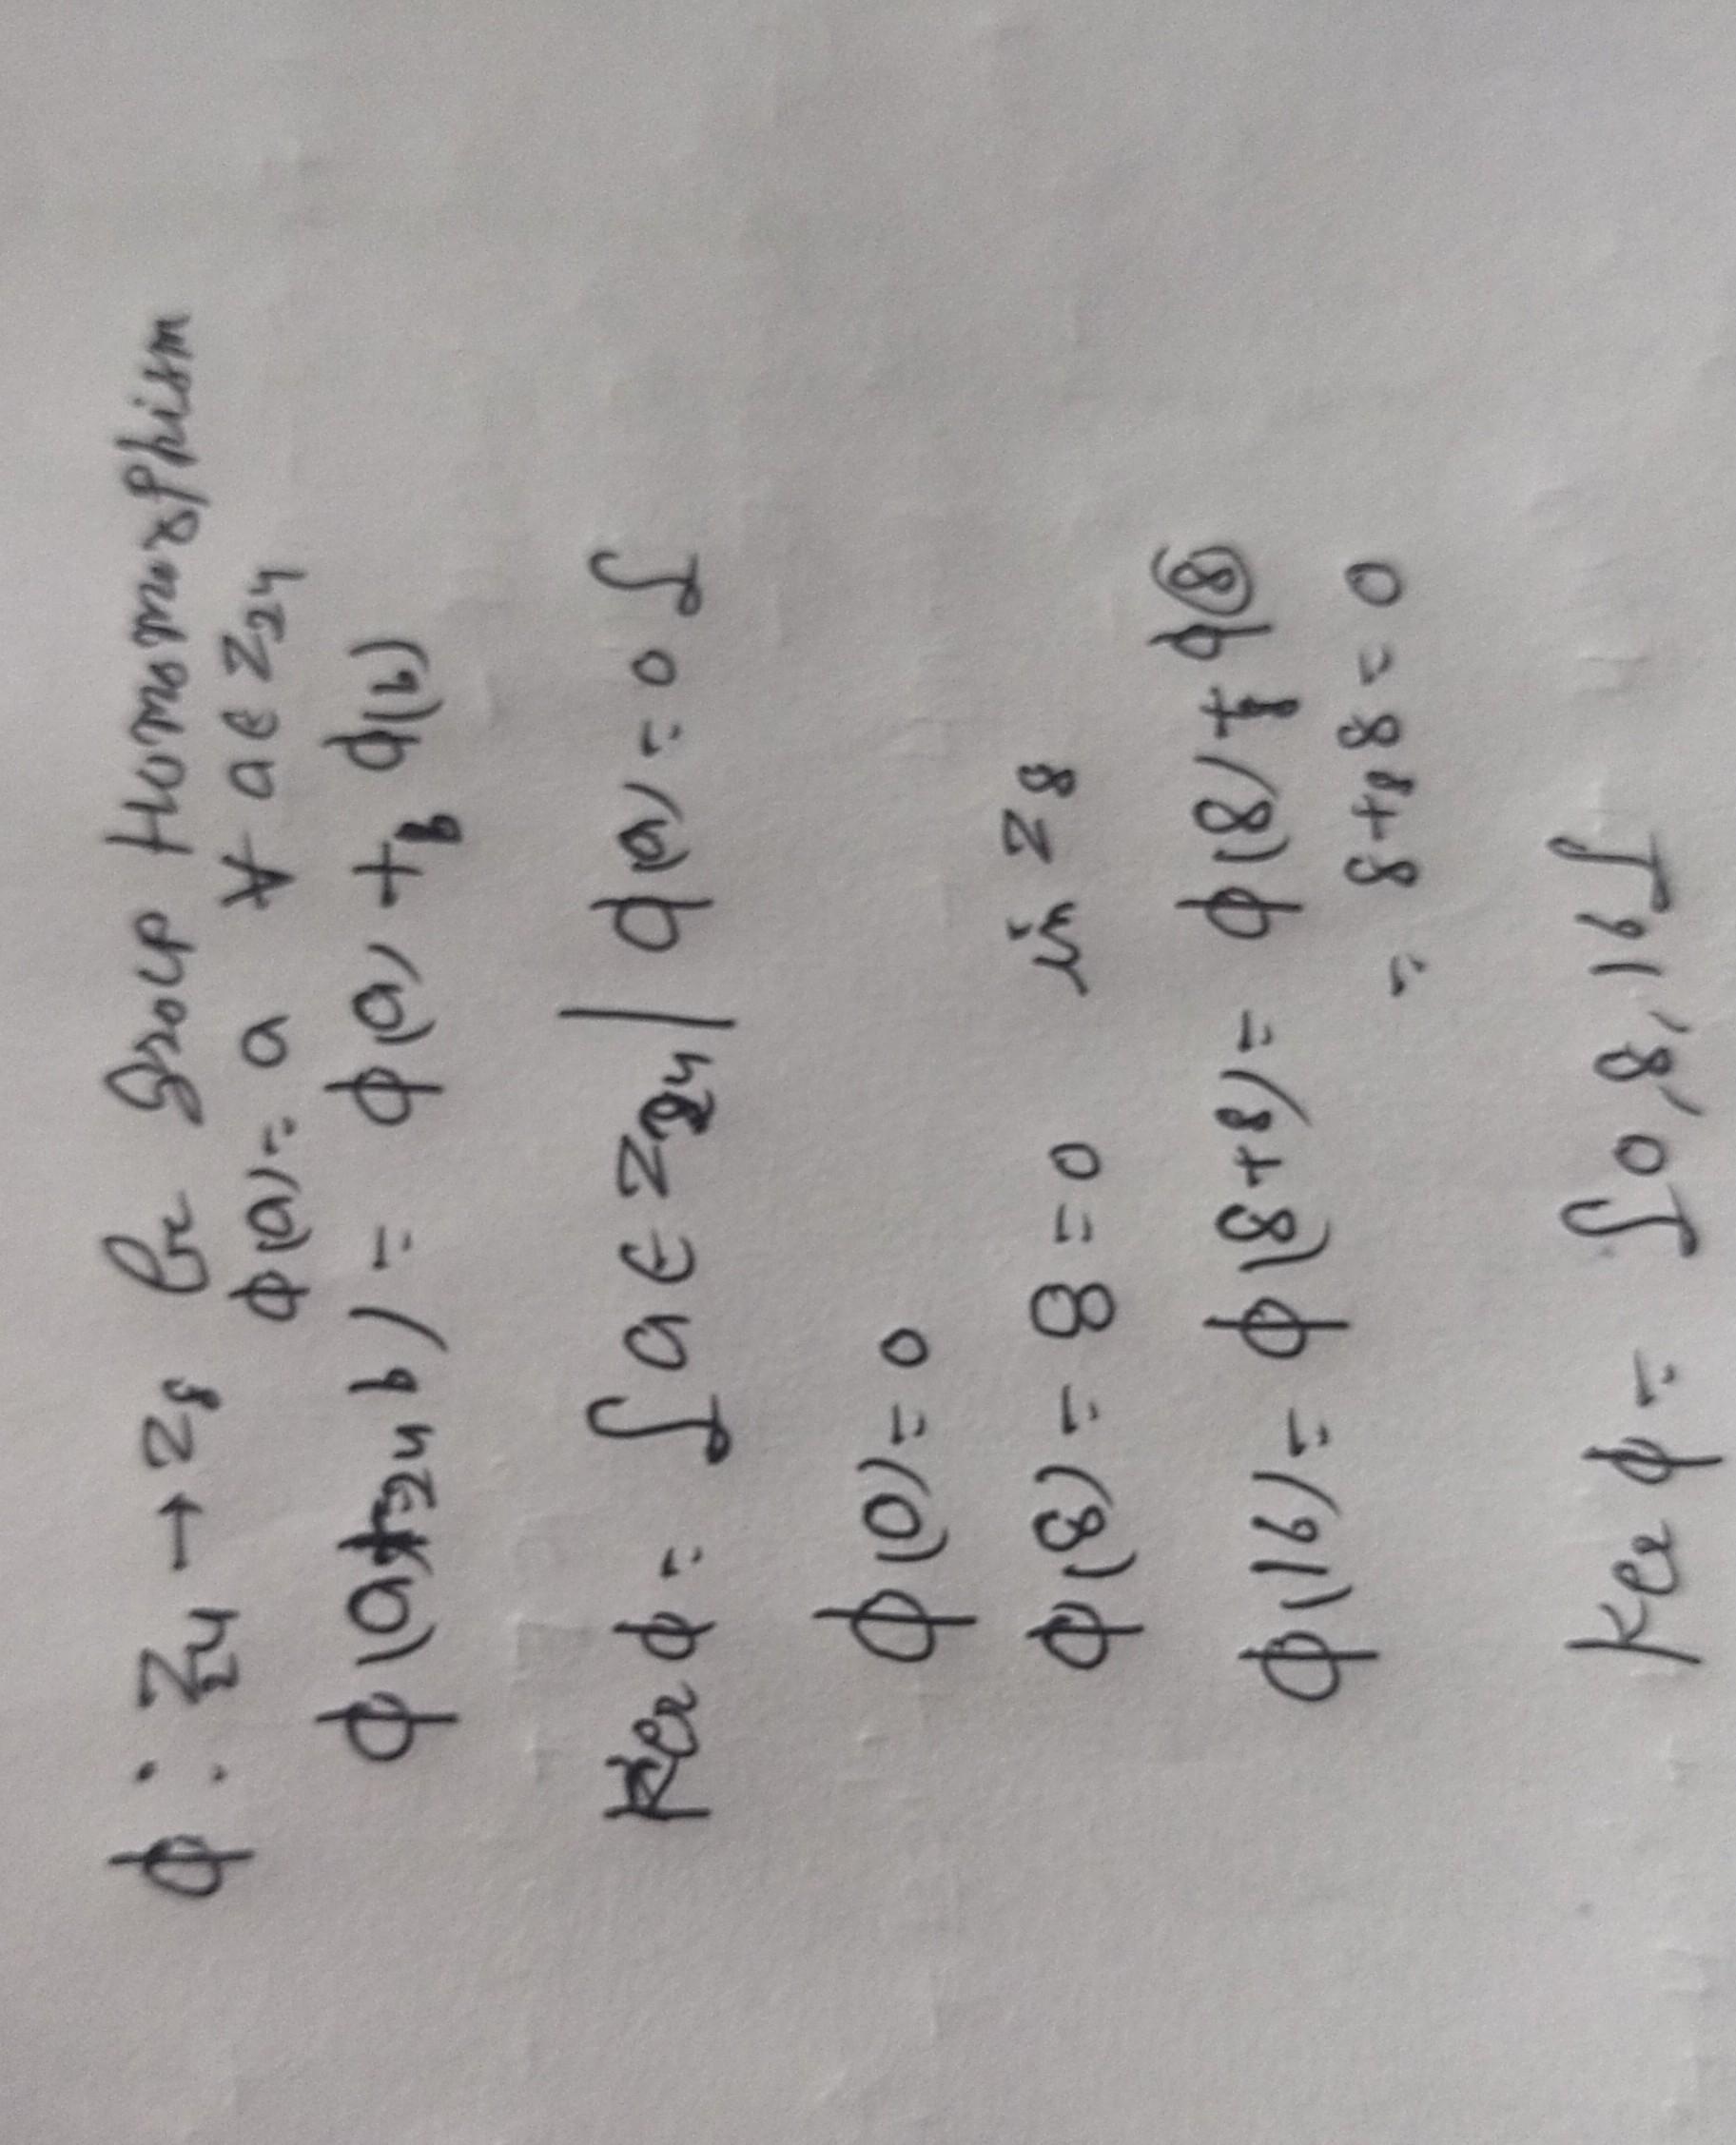 ϕ : Z24 → Z8 be group Homomorphism
ϕ(a) = a ∀ a ∈ Z24
ϕ(a +24 b) = ϕ(a) +8 ϕ(b)
Ker ϕ = { a ∈ Z24 | ϕ(a) = 0 }
ϕ(0) = 0
ϕ(8) = 8 = 0 in Z8
ϕ(16) = ϕ(8+8) = ϕ(8) +8 ϕ(8)
= 8+8 8 = 0
Ker ϕ = { 0, 8, 16 }